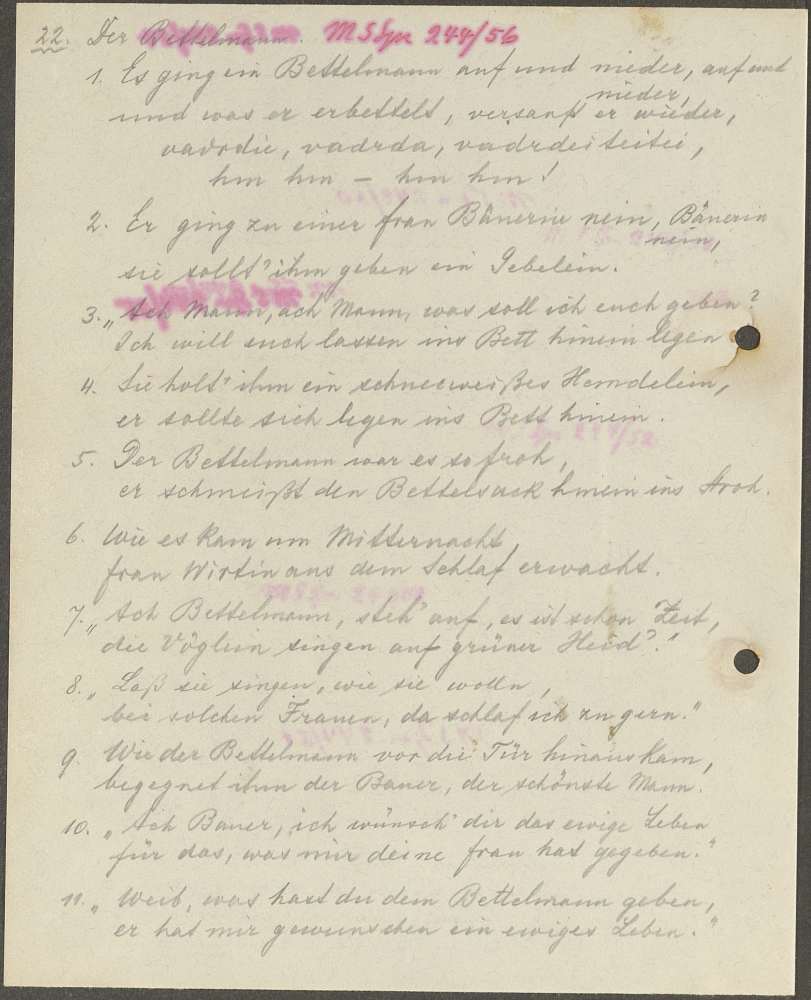 22. Der Bettelmann. MSSpr 244/56
1. Es ging ein Bettelmann auf und nieder, auf und
nieder,
und was er erbettelt, versauft er wieder,
vadrdie, vadrda, vadrdeiteitei,
hm hm - hm hm!
2. Er ging zu einer frau Bäuerin nein, Bäuerin
nein,
sie sollt' ihm geben ein Gebelein.
3. "Ach Mann, ach Mann, was soll ich euch geben?
Ich will euch lassen ins Bett hinein legen
4. Sie holt' ihm ein schneeweißes Hemdelein,
er sollte sich legen ins Bett hinein.
5. Der Bettelmann war es so froh,
er schmeißt den Bettelsack hinein ins Stroh.
6. Wie es kam um Mitternacht,
frau Wirtin aus dem Schlaf erwacht.
7. "Ach Bettelmann, steh' auf, es ist schon Zeit,
die Vöglein singen auf grüner Heid'."
8. "Laß sie singen, wie sie wolln,
bei solchen Frauen, da schlaf ich zu gern."
9. Wie der Bettelmann vor die Tür hinaus kam,
begegnet ihm der Bauer, der schönste Mann.
10. "Ach Bauer, ich wünsch' dir das ewige Leben
für das, was mir deine frau hat gegeben."
11. "Weib, was hast du dem Bettelmann geben,
er hat mir gewunschen ein ewiges Leben."